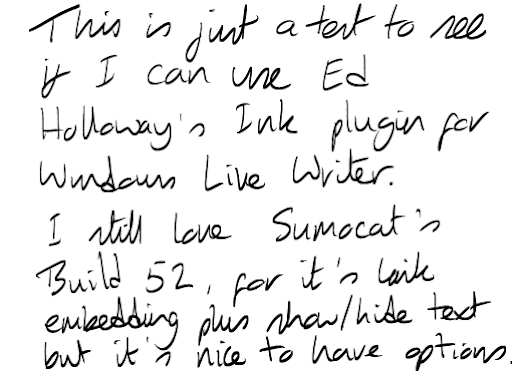 This is just a test to see
if I can use Ed
Holloway's Ink plugin for
Windows Live Writer.
I still love Sumocat's
Build 52, for it's link
embedding plus show/hide text
but it's nice to have options.